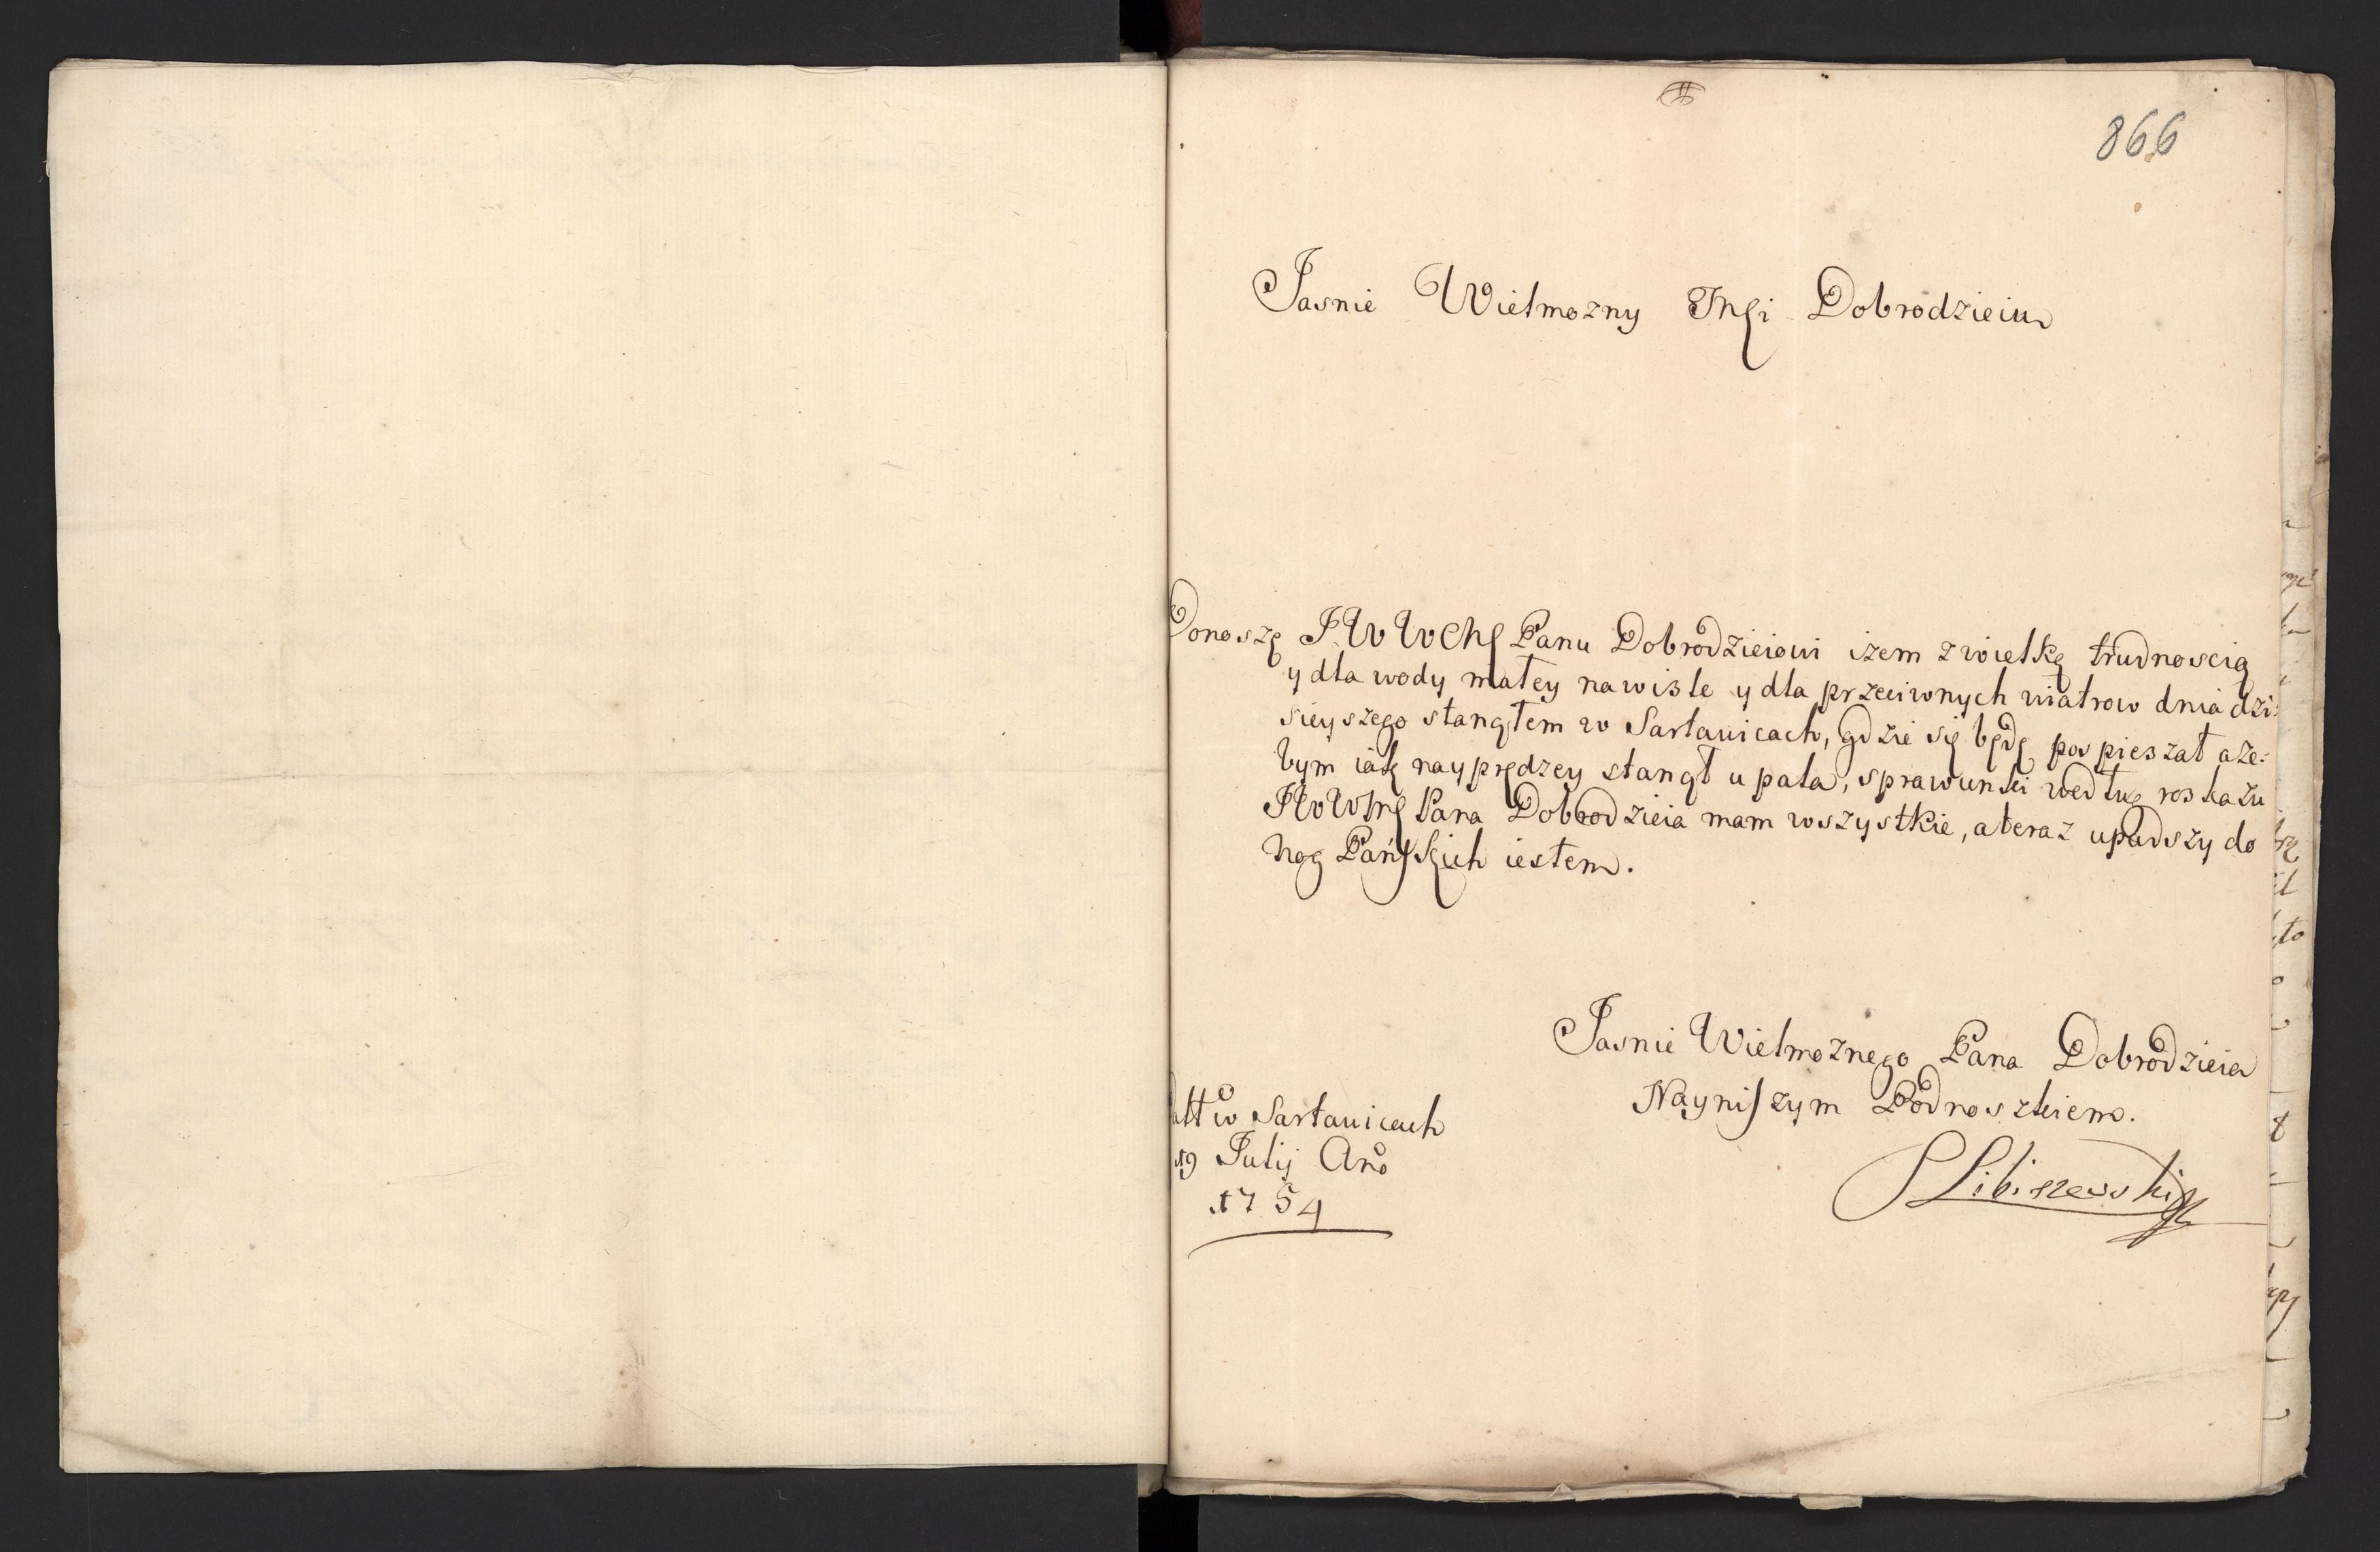 866
Jasnie Wielmozny Mśi Dobrodzieiu
Donoszę JWWMś Panu Dobrodzieiowi iżem z wielką trudnoscią
y dla wody małey na wisle y dla przeciwnych wiatrow dnia dzi:
sieyszego stanąłem w Sartawicach, gdzie się będę pospieszał aze:
bym iak nayprędzey stanął u pala, sprawunki według roskazu
JWWMś Pana Dobrodzieia mam wszystkie, a teraz upadszy do
Nog Pańskich iestem.
Jasnie Wielmoznego Pana Dobrodzieia
Nayniszym Podnoszkiem.
Datt w Sartawicach
19 Julij Ano
1754
SLibiszewski